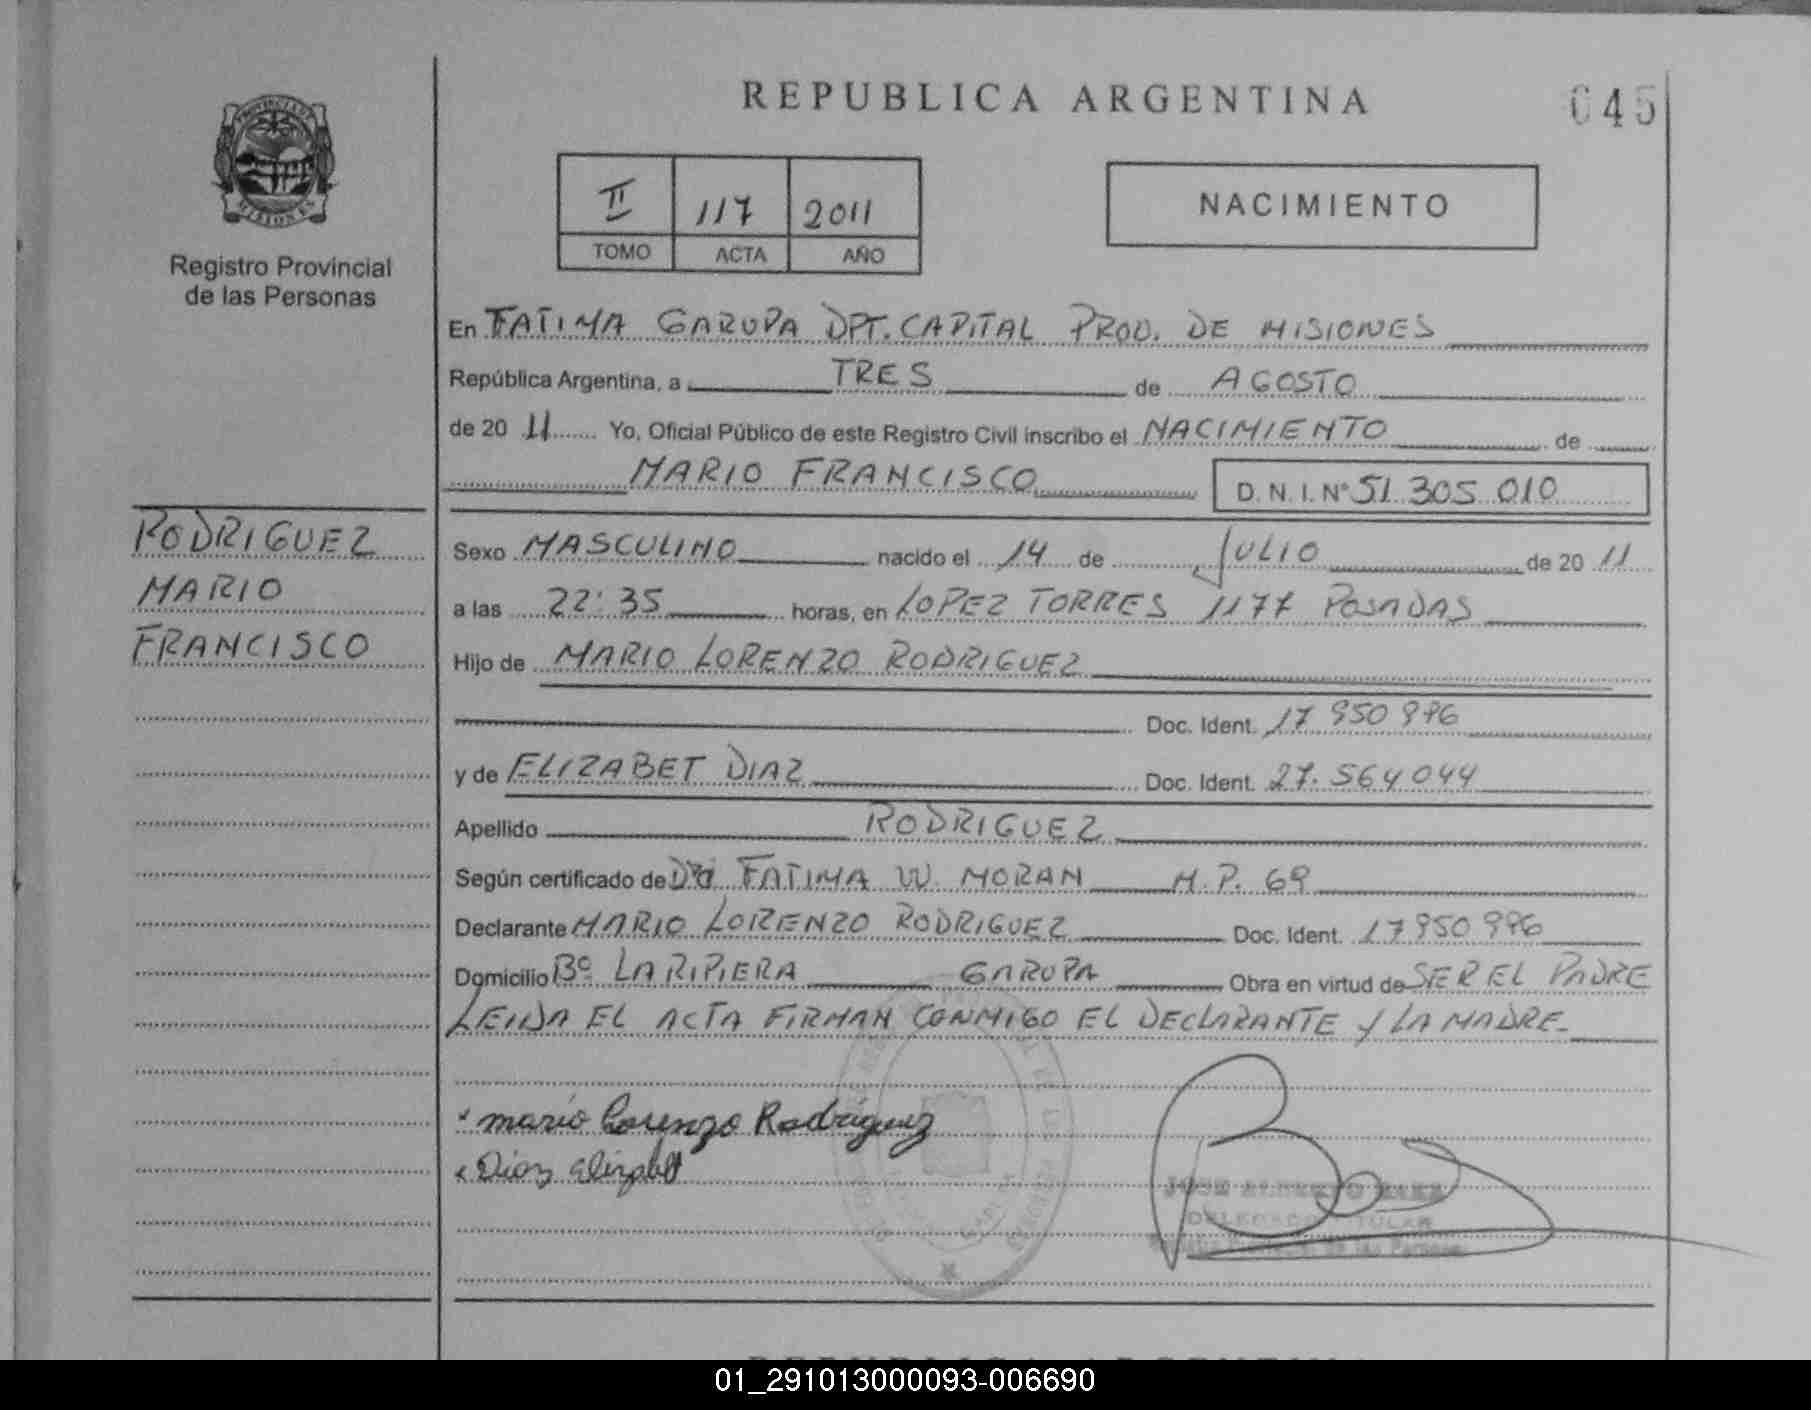 REPUBLICA ARGENTINA
045
PROVINCIA DE
MISIONES
Registro Provincial
de las Personas
II 117 2011
TOMO ACTA AÑO
NACIMIENTO
En FATIMA GARUPA DPT. CAPITAL PROV. DE MISIONES
República Argentina, a TRES de AGOSTO
de 20 11 Yo, Oficial Público de este Registro Civil inscribo el NACIMIENTO de
MARIO FRANCISCO D.N.I. Nº 51 305 010
RODRIGUEZ
MARIO
FRANCISCO
Sexo MASCULINO nacido el 14 de JULIO de 20 11
a las 22:35 horas, en LOPEZ TORRES 1177 POSADAS
Hijo de MARIO LORENZO RODRIGUEZ
Doc. Ident. 17 950 996
y de ELIZABET DIAZ Doc. Ident. 27.564044
Apellido RODRIGUEZ
Según certificado de Dra FATIMA W. MORAN M.P. 69
Declarante MARIO LORENZO RODRIGUEZ Doc. Ident. 17950996
Domicilio Bº LA RIPIERA GARUPA Obra en virtud de SER EL PADRE
LEIDA EL ACTA FIRMAN CONMIGO EL DECLARANTE Y LA MADRE.
mario Lorenzo Rodriguez
Diaz Elizabet
JOSE ALBERTO BAEZ
DELEGADO TITULAR
de las Personas
REPUBLICA ARGENTINA
01_291013000093-006690